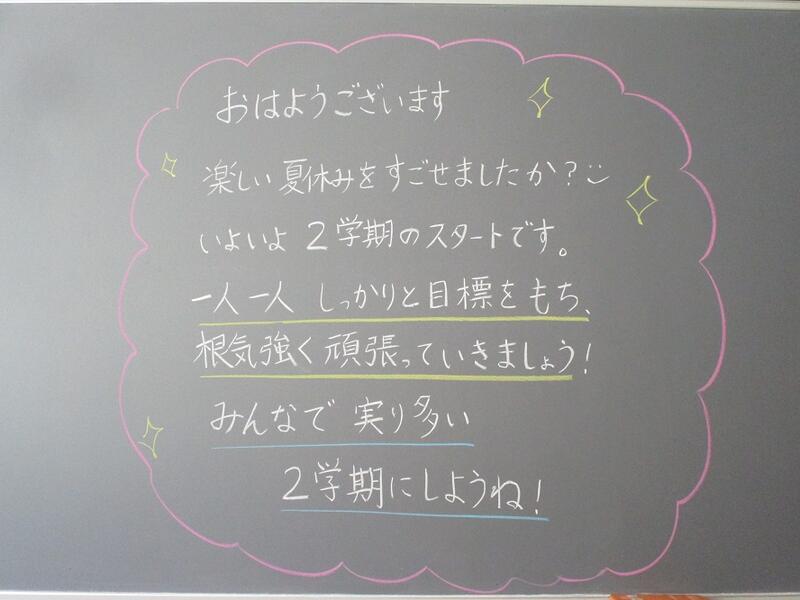 おはようございます
楽しい夏休みをすごせましたか?
いよいよ 2学期のスタートです。
一人一人 しっかりと目標をもち、
根気強く頑張っていきましょう!
みんなで 実り多い
2学期にしようね!